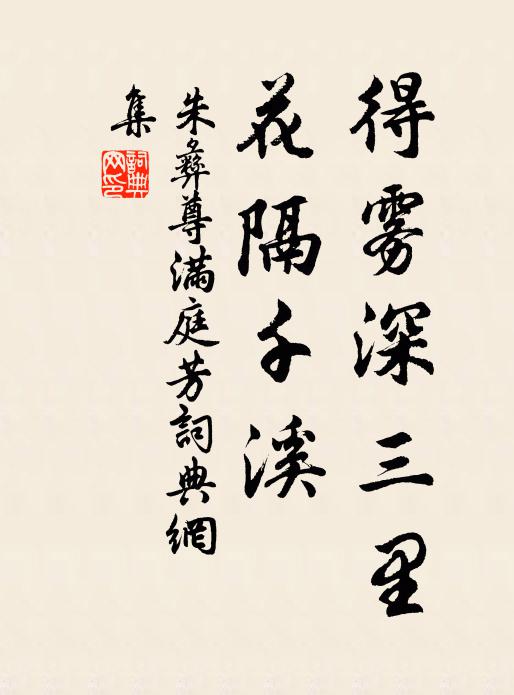 得雾深三里
花隔千溪
朱彝尊满庭芳詞典網
集
詞典网印